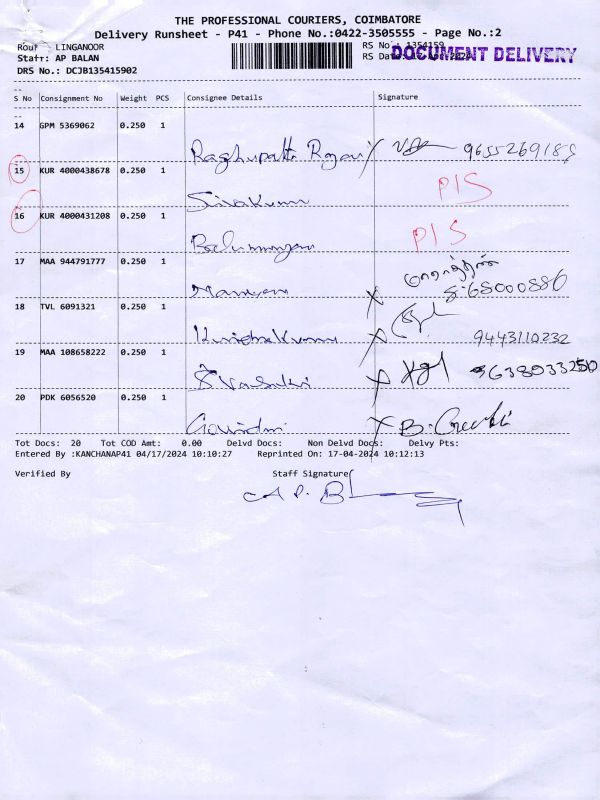 THE PROFESSIONAL COURIERS, COIMBATORE
Delivery Runsheet - P41 - Phone No.:0422-3505555 - Page No.:2
LINGANOOR
RS No 1354159
Staff: AP BALAN
RS Dat
DOCUMENT DELIVERY
DRS No.: DCJB135415902
S No Consignment No Weight PCS Consignee Details Signature
14 GPM 5369062 0.250 1
9655269189
15 KUR 4000438678 0.250 1
Sivakumar
PIS
16 KUR 4000431208 0.250 1
PIS
17 MAA 944791777 0.250 1
18 TVL 6091321 0.250 1
9443110232
19 MAA 108658222 0.250 1
20 PDK 6056520 0.250 1
Tot Docs: 20 Tot COD Amt: 0.00 Delvd Docs: Non Delvd Docs: Delvy Pts:
Entered By :KANCHANAP41 04/17/2024 10:10:27 Reprinted On: 17-04-2024 10:12:13
Verified By Staff Signature